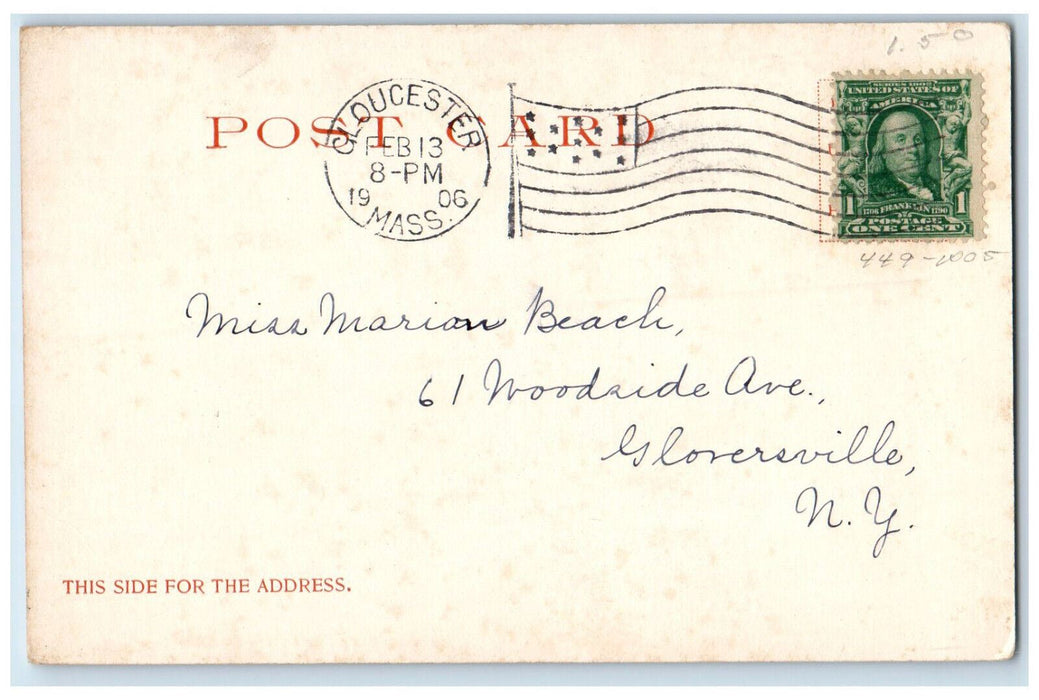 1.50
POST CARD
GLOUCESTER
FEB 13
8-PM
19 06
MASS.
SERIES 1902
UNITED STATES OF
AMERICA
1 1706 FRANKLIN 1790 1
POSTAGE
ONE CENT
449-1005
Miss Marion Beach,
61 Woodside Ave.,
Gloversville,
N.Y.
THIS SIDE FOR THE ADDRESS.